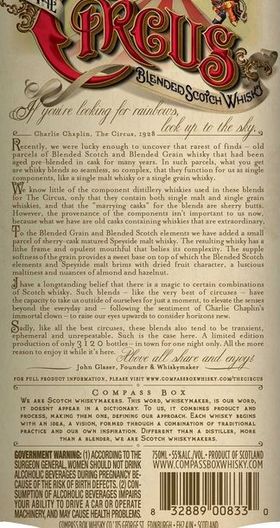 THE
CIRCUS
BLENDED SCOTCH WHISKY
If you're looking for rainbows,
look up to the sky.
Charlie Chaplin, The Circus, 1928
Recently, we were lucky enough to uncover that rarest of finds – old
parcels of Blended Scotch and Blended Grain whisky that had been
aged pre-blended in cask for many years. In such parcels, what you get
are whisky blends so seamless, so complex, that they function for us as single
components, like a single malt whisky or a single grain whisky.
We know little of the component distillery whiskies used in these blends
for The Circus, only that they contain both single malt and single grain
whiskies, and that the "marrying casks" for the blends are sherry butts.
However, the provenance of the components isn't important to us now,
because what we have are old casks containing whiskies that are extraordinary.
To the Blended Grain and Blended Scotch elements we have added a small
parcel of sherry-cask matured Speyside malt whisky. The resulting whisky has a
lithe frame and opulent mouthful that belies its complexity. The supple
softness of the grain provides a sweet base on top of which the Blended Scotch
elements and Speyside malt brings with dried fruit character, a luscious
maltiness and nuances of almond and hazelnut.
I have a longstanding belief that there is a magic to certain combinations
of Scotch whisky. Such blends – like the very best of circuses – have
the capacity to take us outside of ourselves for just a moment, to elevate the senses
beyond the everyday and – following the sentiment of Charlie Chaplin's
immortal clown – to raise our eyes upwards to consider horizons new.
Sadly, like all the best circuses, these blends also tend to be transient,
ephemeral and unrepeatable. Such is the case here. A limited edition
production of only 3120 bottles – in town for one night only. All the more
reason to enjoy it while it's here.
Above all, share and enjoy!
John Glaser, Founder & Whiskymaker
FOR FULL PRODUCT INFORMATION, PLEASE VISIT WWW.COMPASSBOXWHISKY.COM/THECIRCUS
COMPASS BOX
WE ARE SCOTCH WHISKYMAKERS. THIS WORD, WHISKYMAKER, IS OUR WORD,
IT DOESN'T APPEAR IN A DICTIONARY. TO US, IT COMBINES PRODUCT AND
PROCESS, MAKING THEM ONE, DEFINING OUR APPROACH. EACH WHISKY BEGINS
WITH AN IDEA, A VISION, FORMED THROUGH A COMBINATION OF TRADITIONAL
PRACTICE AND OUR OWN INSPIRATION. DIFFERENT THAN A DISTILLER, MORE
THAN A BLENDER, WE ARE SCOTCH WHISKYMAKERS.
GOVERNMENT WARNING: (1) ACCORDING TO THE
SURGEON GENERAL, WOMEN SHOULD NOT DRINK
ALCOHOLIC BEVERAGES DURING PREGNANCY BE-
CAUSE OF THE RISK OF BIRTH DEFECTS. (2) CON-
SUMPTION OF ALCOHOLIC BEVERAGES IMPAIRS
YOUR ABILITY TO DRIVE A CAR OR OPERATE
MACHINERY, AND MAY CAUSE HEALTH PROBLEMS.
750ML · PRODUCT OF SCOTLAND
WWW.COMPASSBOXWHISKY.COM
8 32889 00833 0